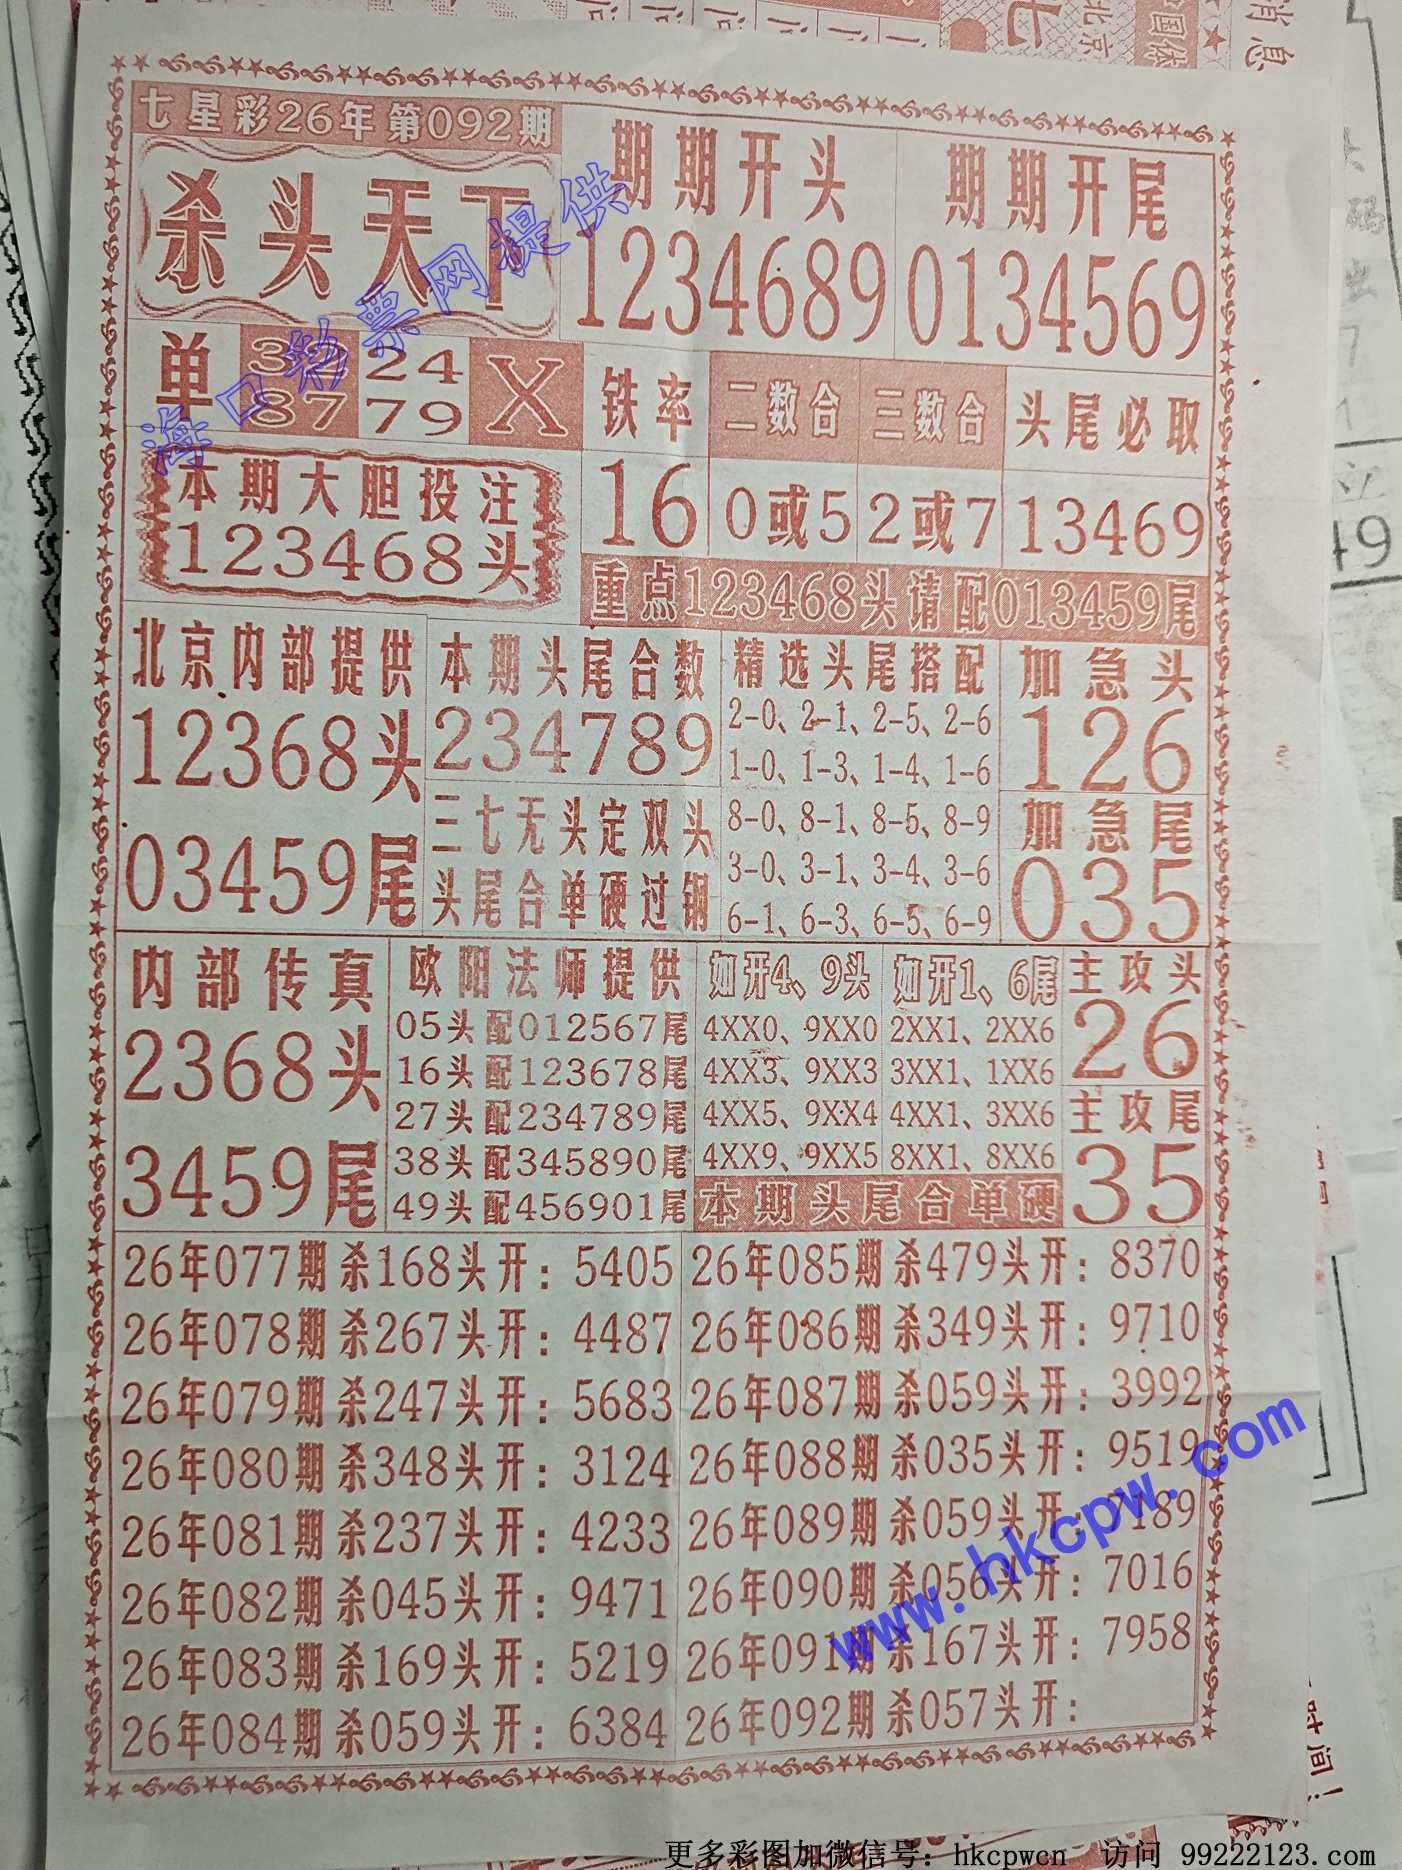 七星彩26年第092期
杀头天下
期期开头
1234689
期期开尾
0134569
海口彩票网提供
单
24
87 79
X
铁率
16
二数合
0或5
三数合
2或7
头尾必取
13469
本期大胆投注
123468头
重点123468头请配013459尾
北京内部提供
12368头
03459尾
本期头尾合数
234789
三七无头定双头
头尾合单硬过钢
精选头尾搭配
2-0、2-1、2-5、2-6
1-0、1-3、1-4、1-6
8-0、8-1、8-5、8-9
3-0、3-1、3-4、3-6
6-1、6-3、6-5、6-9
加急头
126
加急尾
035
内部传真
2368头
3459尾
欧阳法师提供
05头配012567尾
16头配123678尾
27头配234789尾
38头配345890尾
49头配456901尾
如开4、9头
4XX0、9XX0
4XX3、9XX3
4XX5、9XX4
4XX9、9XX5
如开1、6尾
2XX1、2XX6
3XX1、1XX6
4XX1、3XX6
8XX1、8XX6
本期头尾合单硬
主攻头
26
主攻尾
35
26年077期杀168头开：5405
26年078期杀267头开：4487
26年079期杀247头开：5683
26年080期杀348头开：3124
26年081期杀237头开：4233
26年082期杀045头开：9471
26年083期杀169头开：5219
26年084期杀059头开：6384
26年085期杀479头开：8370
26年086期杀349头开：9710
26年087期杀059头开：3992
26年088期杀035头开：9519
26年089期杀059头开：7189
26年090期杀056头开：7016
26年091期杀167头开：7958
26年092期杀057头开：
www.hkcpw.com
消息
北京
七
中国体
时间！
更多彩图加微信号：hkcpwcn 访问 99222123.com